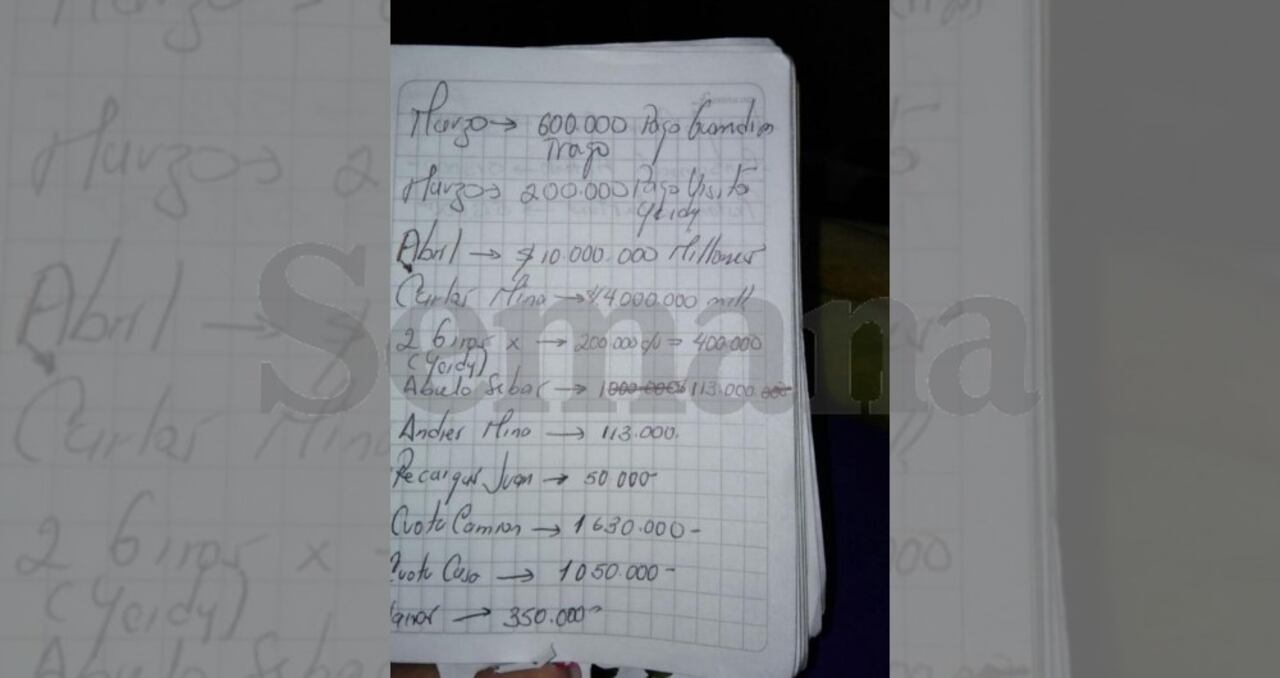 Marzo → 600.000 Pago Guardian
Trago
Marzo → 200.000 Pago Visita
Yeidy
Abril → $10.000.000 Millones
Carlos Mina → $14.000.000 mill
2 Giros x → 200.000 c/u = 400.000
(Yeidy)
Abuelo Sebas → 113.000
Andres Mina → 113.000.
Recargas Juan → 50.000
Cuota Camion → 1630.000-
Cuota Casa → 1050.000-
→ 350.000
Semana